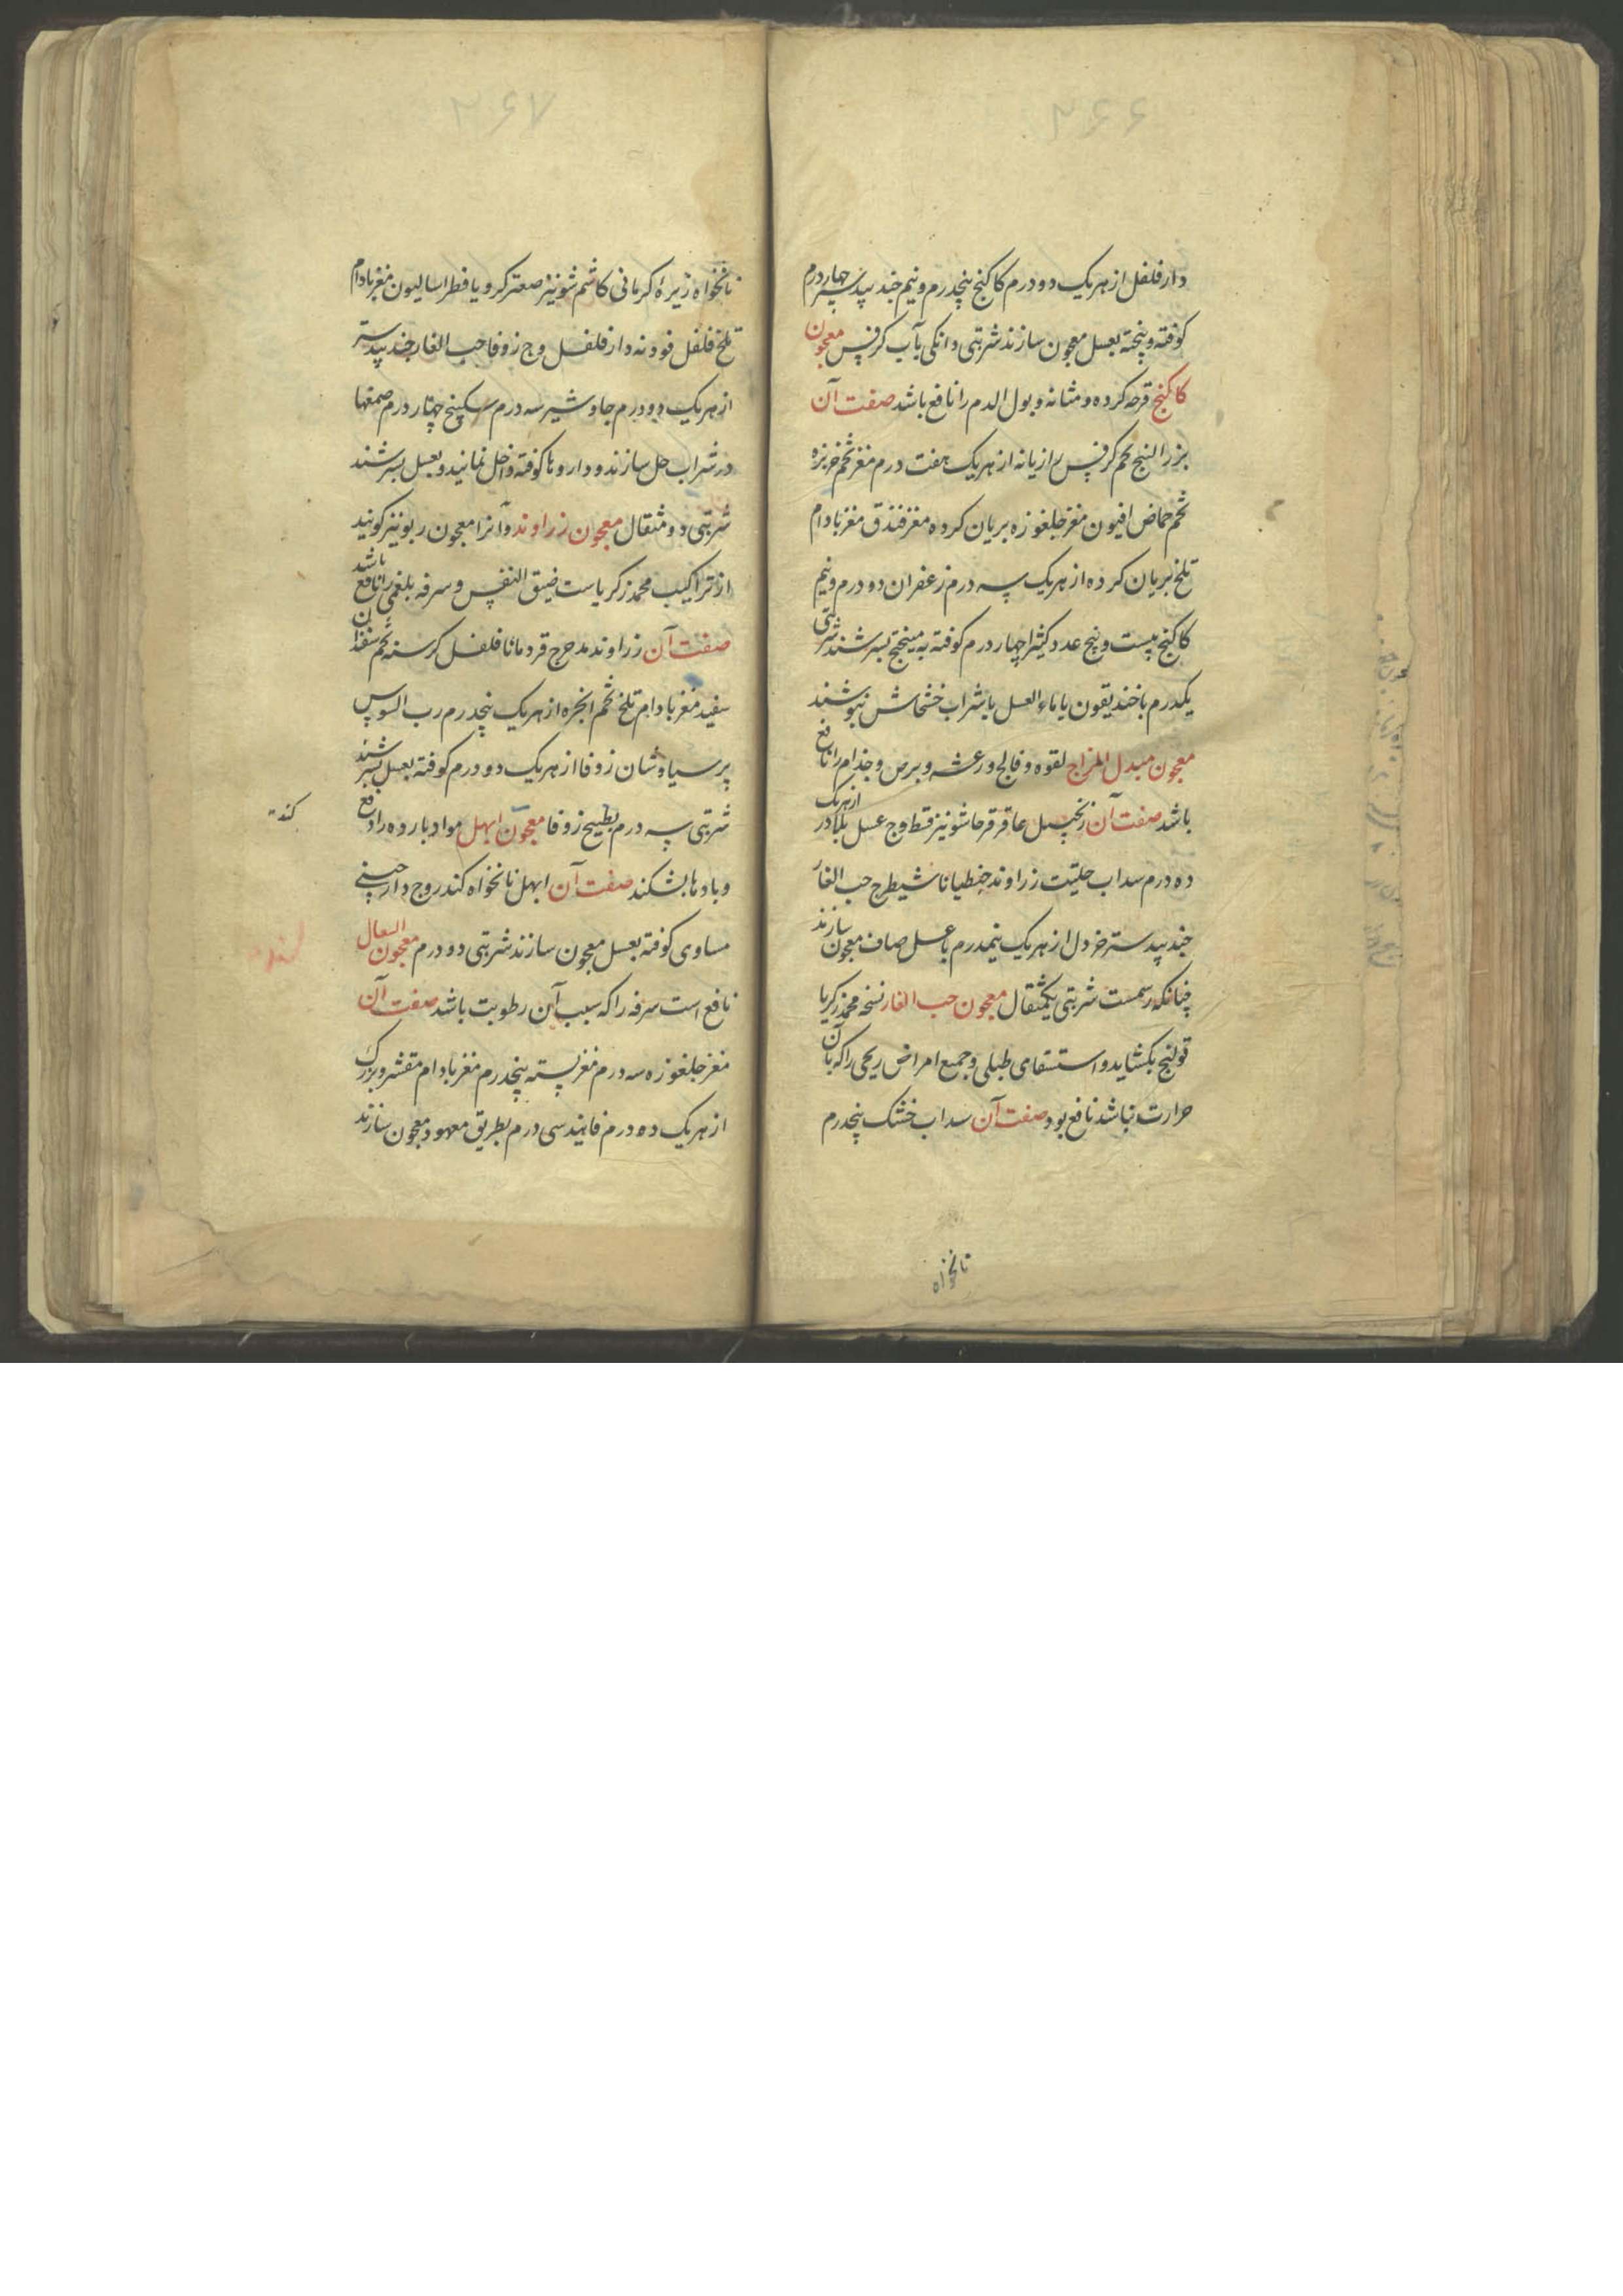 ۲۶۶
دار فلفل از هر یک دو درم کاکنج پنجدرم و نیم جند بیدستر چهار درم
کوفته و پخته بعسل معجون سازند شربتی دانکی بآب کرفس معجون
کاکنج قرحه کرده و مثانه و بول الدم را نافع باشد صفت آن
بزر البنج تخم کرفس رازیانه از هر یک هفت درم مغز تخم خربزه
تخم حماض افیون مغز جلغوزه بریان کرده مغز فندق مغز بادام
تلخ بریان کرده از هر یک سه درم زعفران دو درم و نیم
کاکنج بیست و پنج عدد کثیرا چهار درم کوفته به میبختج بسرشند شربتی
یکدرم با خندیقون یا ماء العسل یا شراب خشخاش بنوشند
معجون مبدل المزاج لقوه و فالج و رعشه و برص و جذام را نافع
باشد صفت آن زنجبیل عاقرقرحا شونیز قسط وج عسل بلادر از هر یک
ده درم سداب حلتیت زراوند جنطیانا شیطرج حب الغار
جند بیدستر خردل از هر یک نیمدرم با عسل صاف معجون سازند
چنانکه رسمست شربتی یکمثقال معجون حب الغار نسخه محمد زکریا
قولنج بکشاید و استسقای طبلی و جمیع امراض ریحی را که با آن
حرارت نباشد نافع بود صفت آن سداب خشک پنجدرم
نانخواه
۲۶۷
نانخواه زیره کرمانی کاشم شونیز صعتر کرویا فطراسالیون مغز بادام
تلخ فلفل فودنه دار فلفل وج زوفا حب الغار جند بیدستر
از هر یک دو درم جاوشیر سه درم سکبینج چهار درم صمغها
در شراب حل سازند و داروها کوفته داخل نمایند و بعسل بسرشند
شربتی دو مثقال معجون زراوند و آنرا معجون ربو نیز کویند
از تراکیب محمد زکریاست ضیق النفس و سرفه بلغمی را نافع باشد
صفت آن زراوند مدحرج قردمانا فلفل کرسنه تخم سفندان
سفید مغز بادام تلخ تخم انجره از هر یک پنجدرم رب السوس
پر سیاوشان زوفا از هر یک دو درم کوفته بعسل بسرشند
شربتی سه درم بطبیخ زوفا معجون ابهل مواد بارده را دفع
کند
و بادها بشکند صفت آن ابهل نانخواه کندر وج دارچینی
مساوی کوفته بعسل معجون سازند شربتی دو درم معجون السعال
نافع است سرفه را که سبب آن رطوبت باشد صفت آن
مغز جلغوزه سه درم مغز پسته پنجدرم مغز بادام مقشر و بزرک
از هر یک ده درم فانید سی درم بطریق معهود معجون سازند